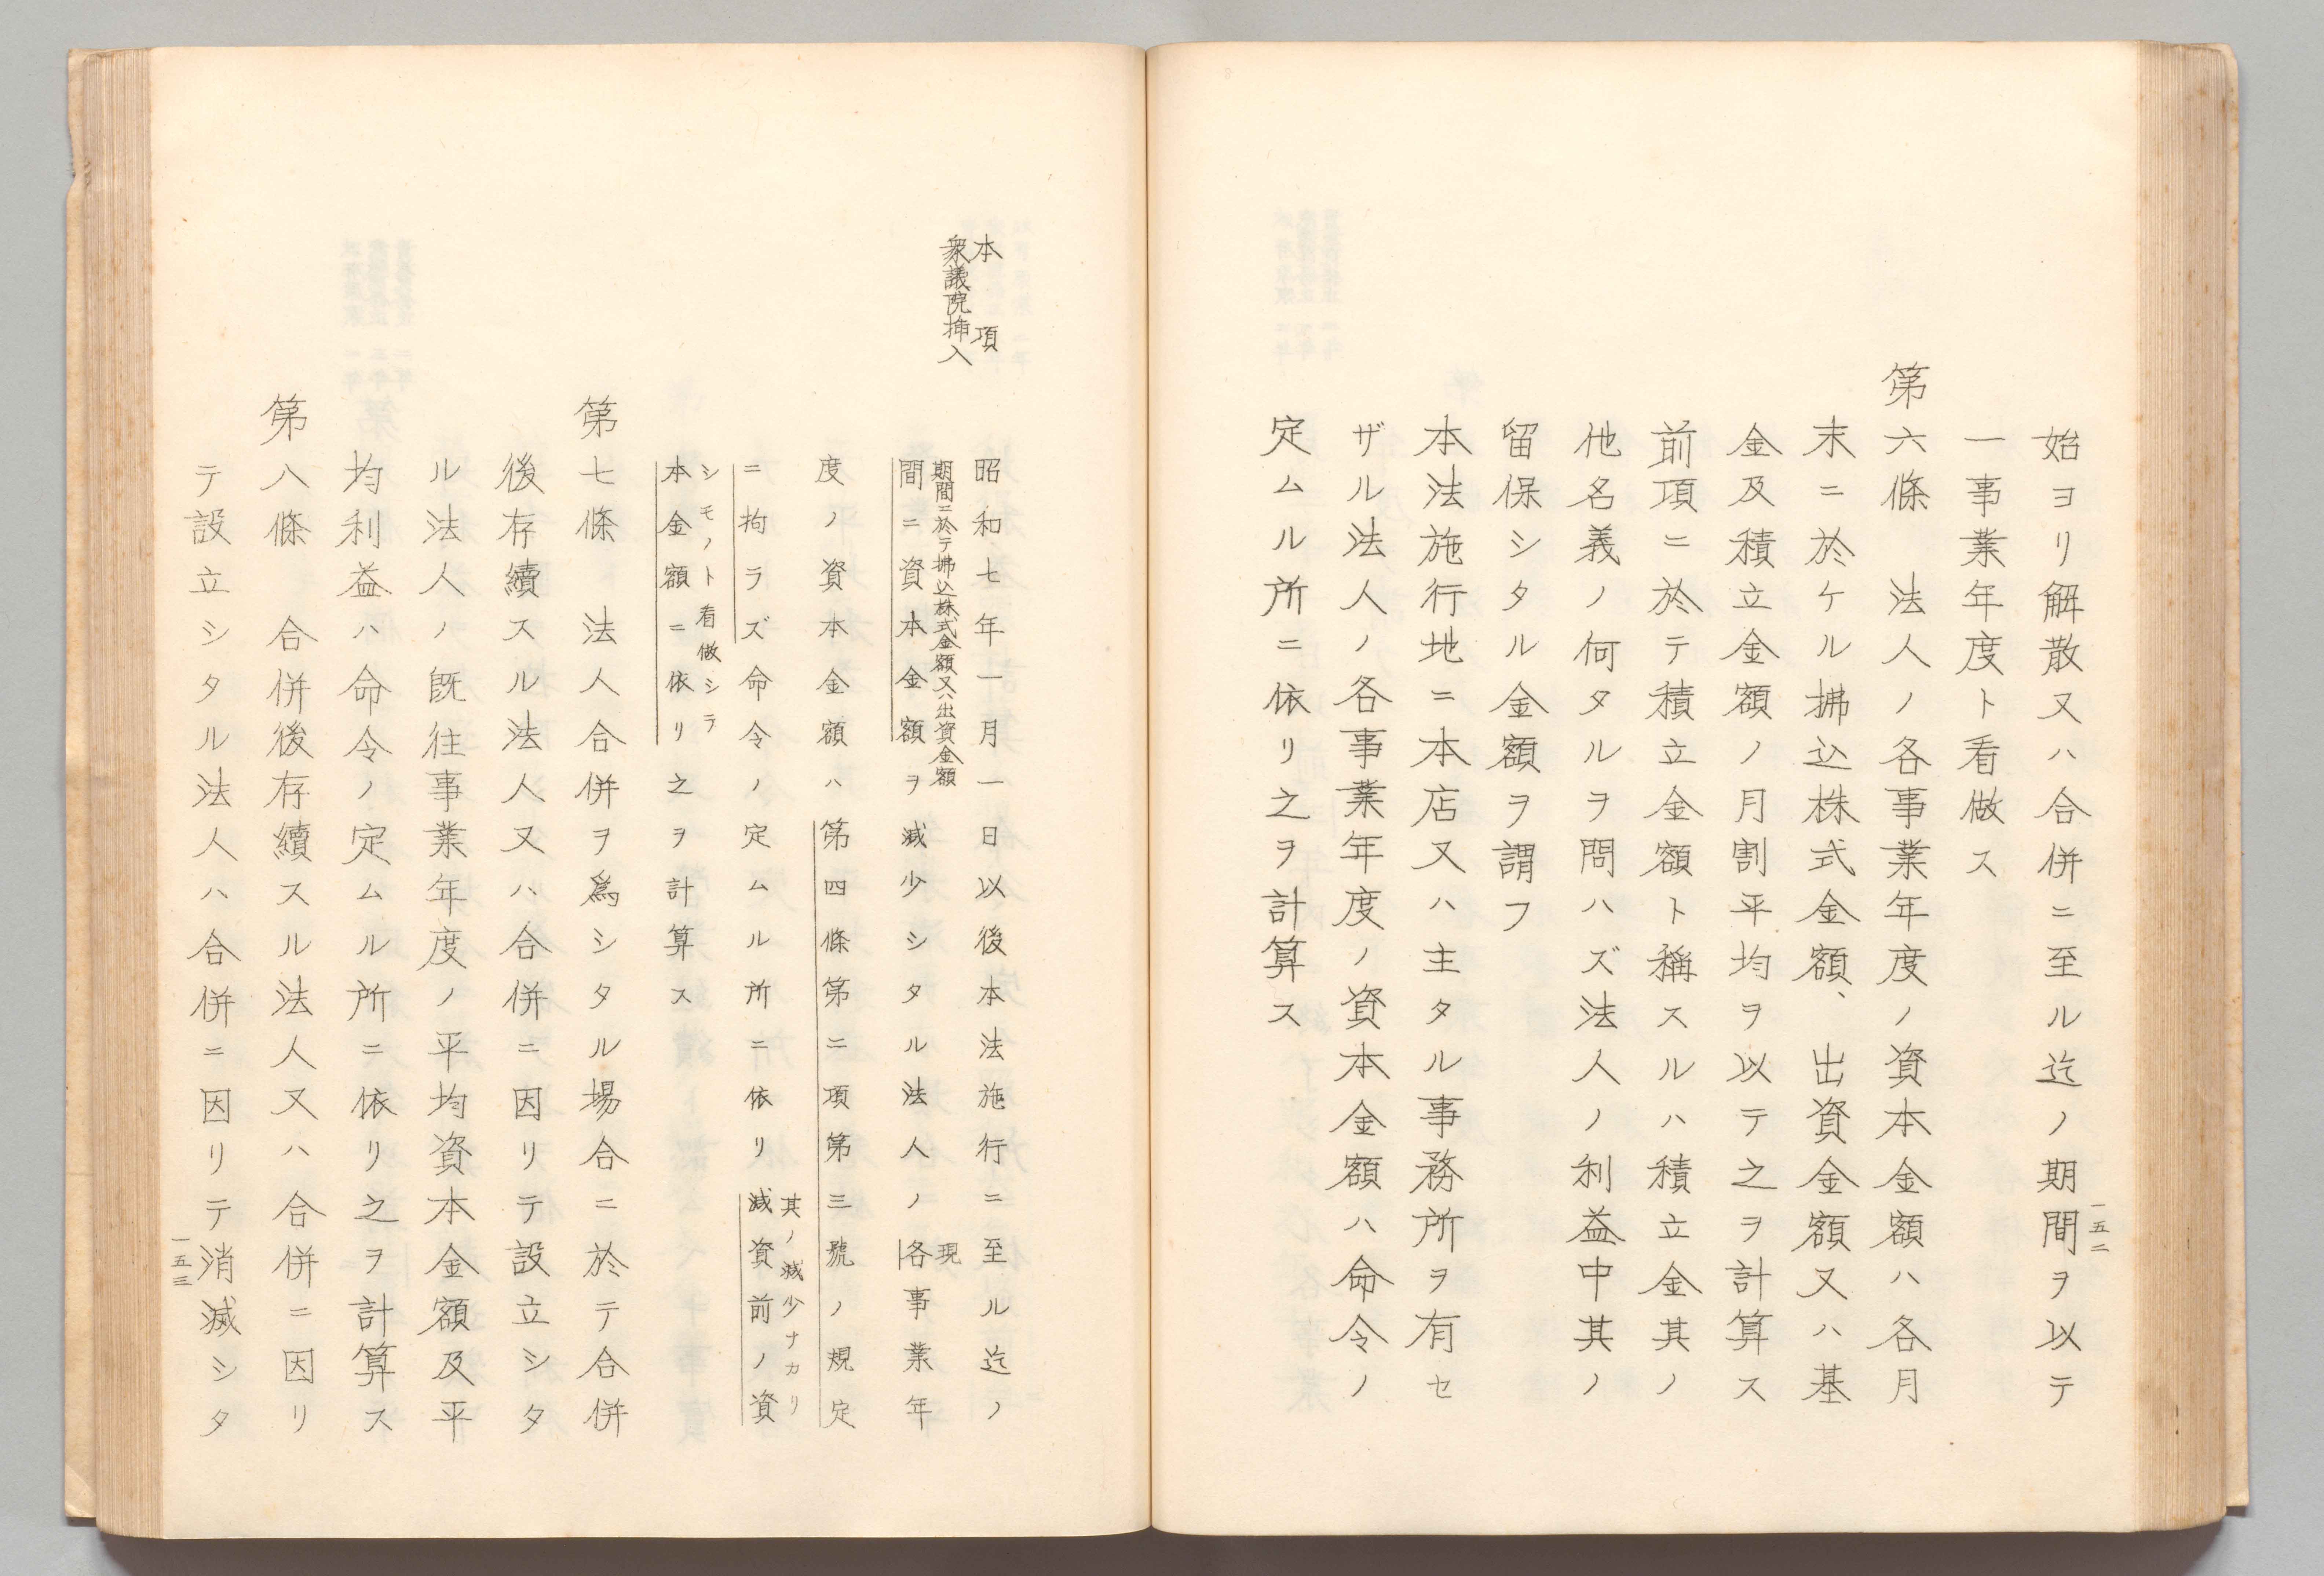 始ヨリ解散又ハ合併ニ至ル迄ノ期間ヲ以テ
一事業年度ト看做ス
第六條　法人ノ各事業年度ノ資本金額ハ各月
末ニ於ケル拂込株式金額、出資金額又ハ基
金及積立金額ノ月割平均ヲ以テ之ヲ計算ス
前項ニ於テ積立金額ト稱スルハ積立金其ノ
他名義ノ何タルヲ問ハズ法人ノ利益中其ノ
留保シタル金額ヲ謂フ
本法施行地ニ本店又ハ主タル事務所ヲ有セ
ザル法人ノ各事業年度ノ資本金額ハ命令ノ
定ムル所ニ依リ之ヲ計算ス
一五二
本項
衆議院挿入
昭和七年一月一日以後本法施行ニ至ル迄ノ
期間ニ於テ拂込株式金額又ハ出資金額
現
間ニ資本金額ヲ減少シタル法人ノ各事業年
度ノ資本金額ハ第四條第二項第三號ノ規定
其ノ減少ナカリ
ニ拘ラズ命令ノ定ムル所ニ依リ減資前ノ資
シモノト看做シラ
本金額ニ依リ之ヲ計算ス
第七條　法人合併ヲ爲シタル場合ニ於テ合併
後存續スル法人又ハ合併ニ因リテ設立シタ
ル法人ノ既往事業年度ノ平均資本金額及平
均利益ハ命令ノ定ムル所ニ依リ之ヲ計算ス
第八條　合併後存續スル法人又ハ合併ニ因リ
テ設立シタル法人ハ合併ニ因リテ消滅シタ
一五三